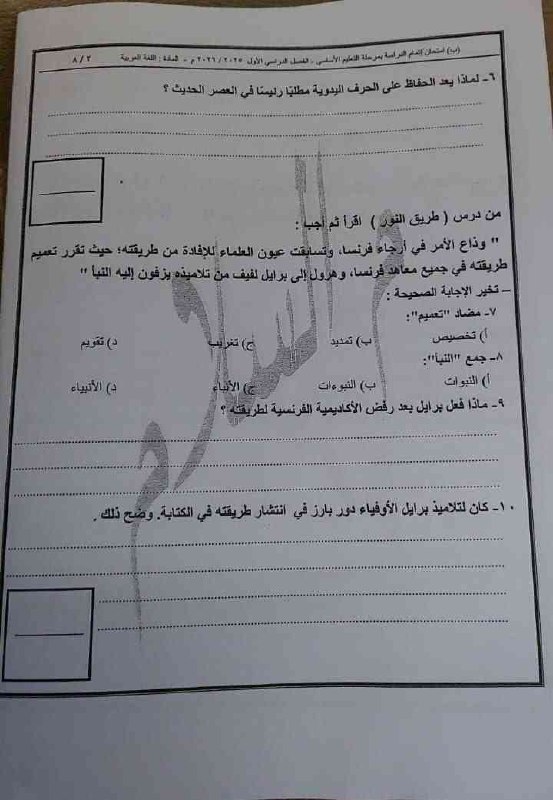 (ب) امتحان إتمام الدراسة بمرحلة التعليم الأساسي - الفصل الدراسي الأول ٢٠٢٥ / ٢٠٢٦ م - المادة : اللغة العربية ٨ / ٢
٦- لماذا يعد الحفاظ على الحرف اليدوية مطلبًا رئيسًا في العصر الحديث ؟
من درس ( طريق النور ) اقرأ ثم أجب :
" وذاع الأمر في أرجاء فرنسا، وتسابقت عيون العلماء للإفادة من طريقته؛ حيث تقرر تعميم
طريقته في جميع معاهد فرنسا، وهرول إلى برايل لفيف من تلاميذه يزفون إليه النبأ "
– تخير الإجابة الصحيحة :
٧- مضاد "تعميم":
أ) تخصيص ب) تمديد ج) تغريب د) تقويم
٨- جمع "النبأ":
أ) النبوات ب) النبوءات ج) الأنباء د) الأنبياء
٩- ماذا فعل برايل بعد رفض الأكاديمية الفرنسية لطريقته ؟
١٠- كان لتلاميذ برايل الأوفياء دور بارز في انتشار طريقته في الكتابة. وضح ذلك .